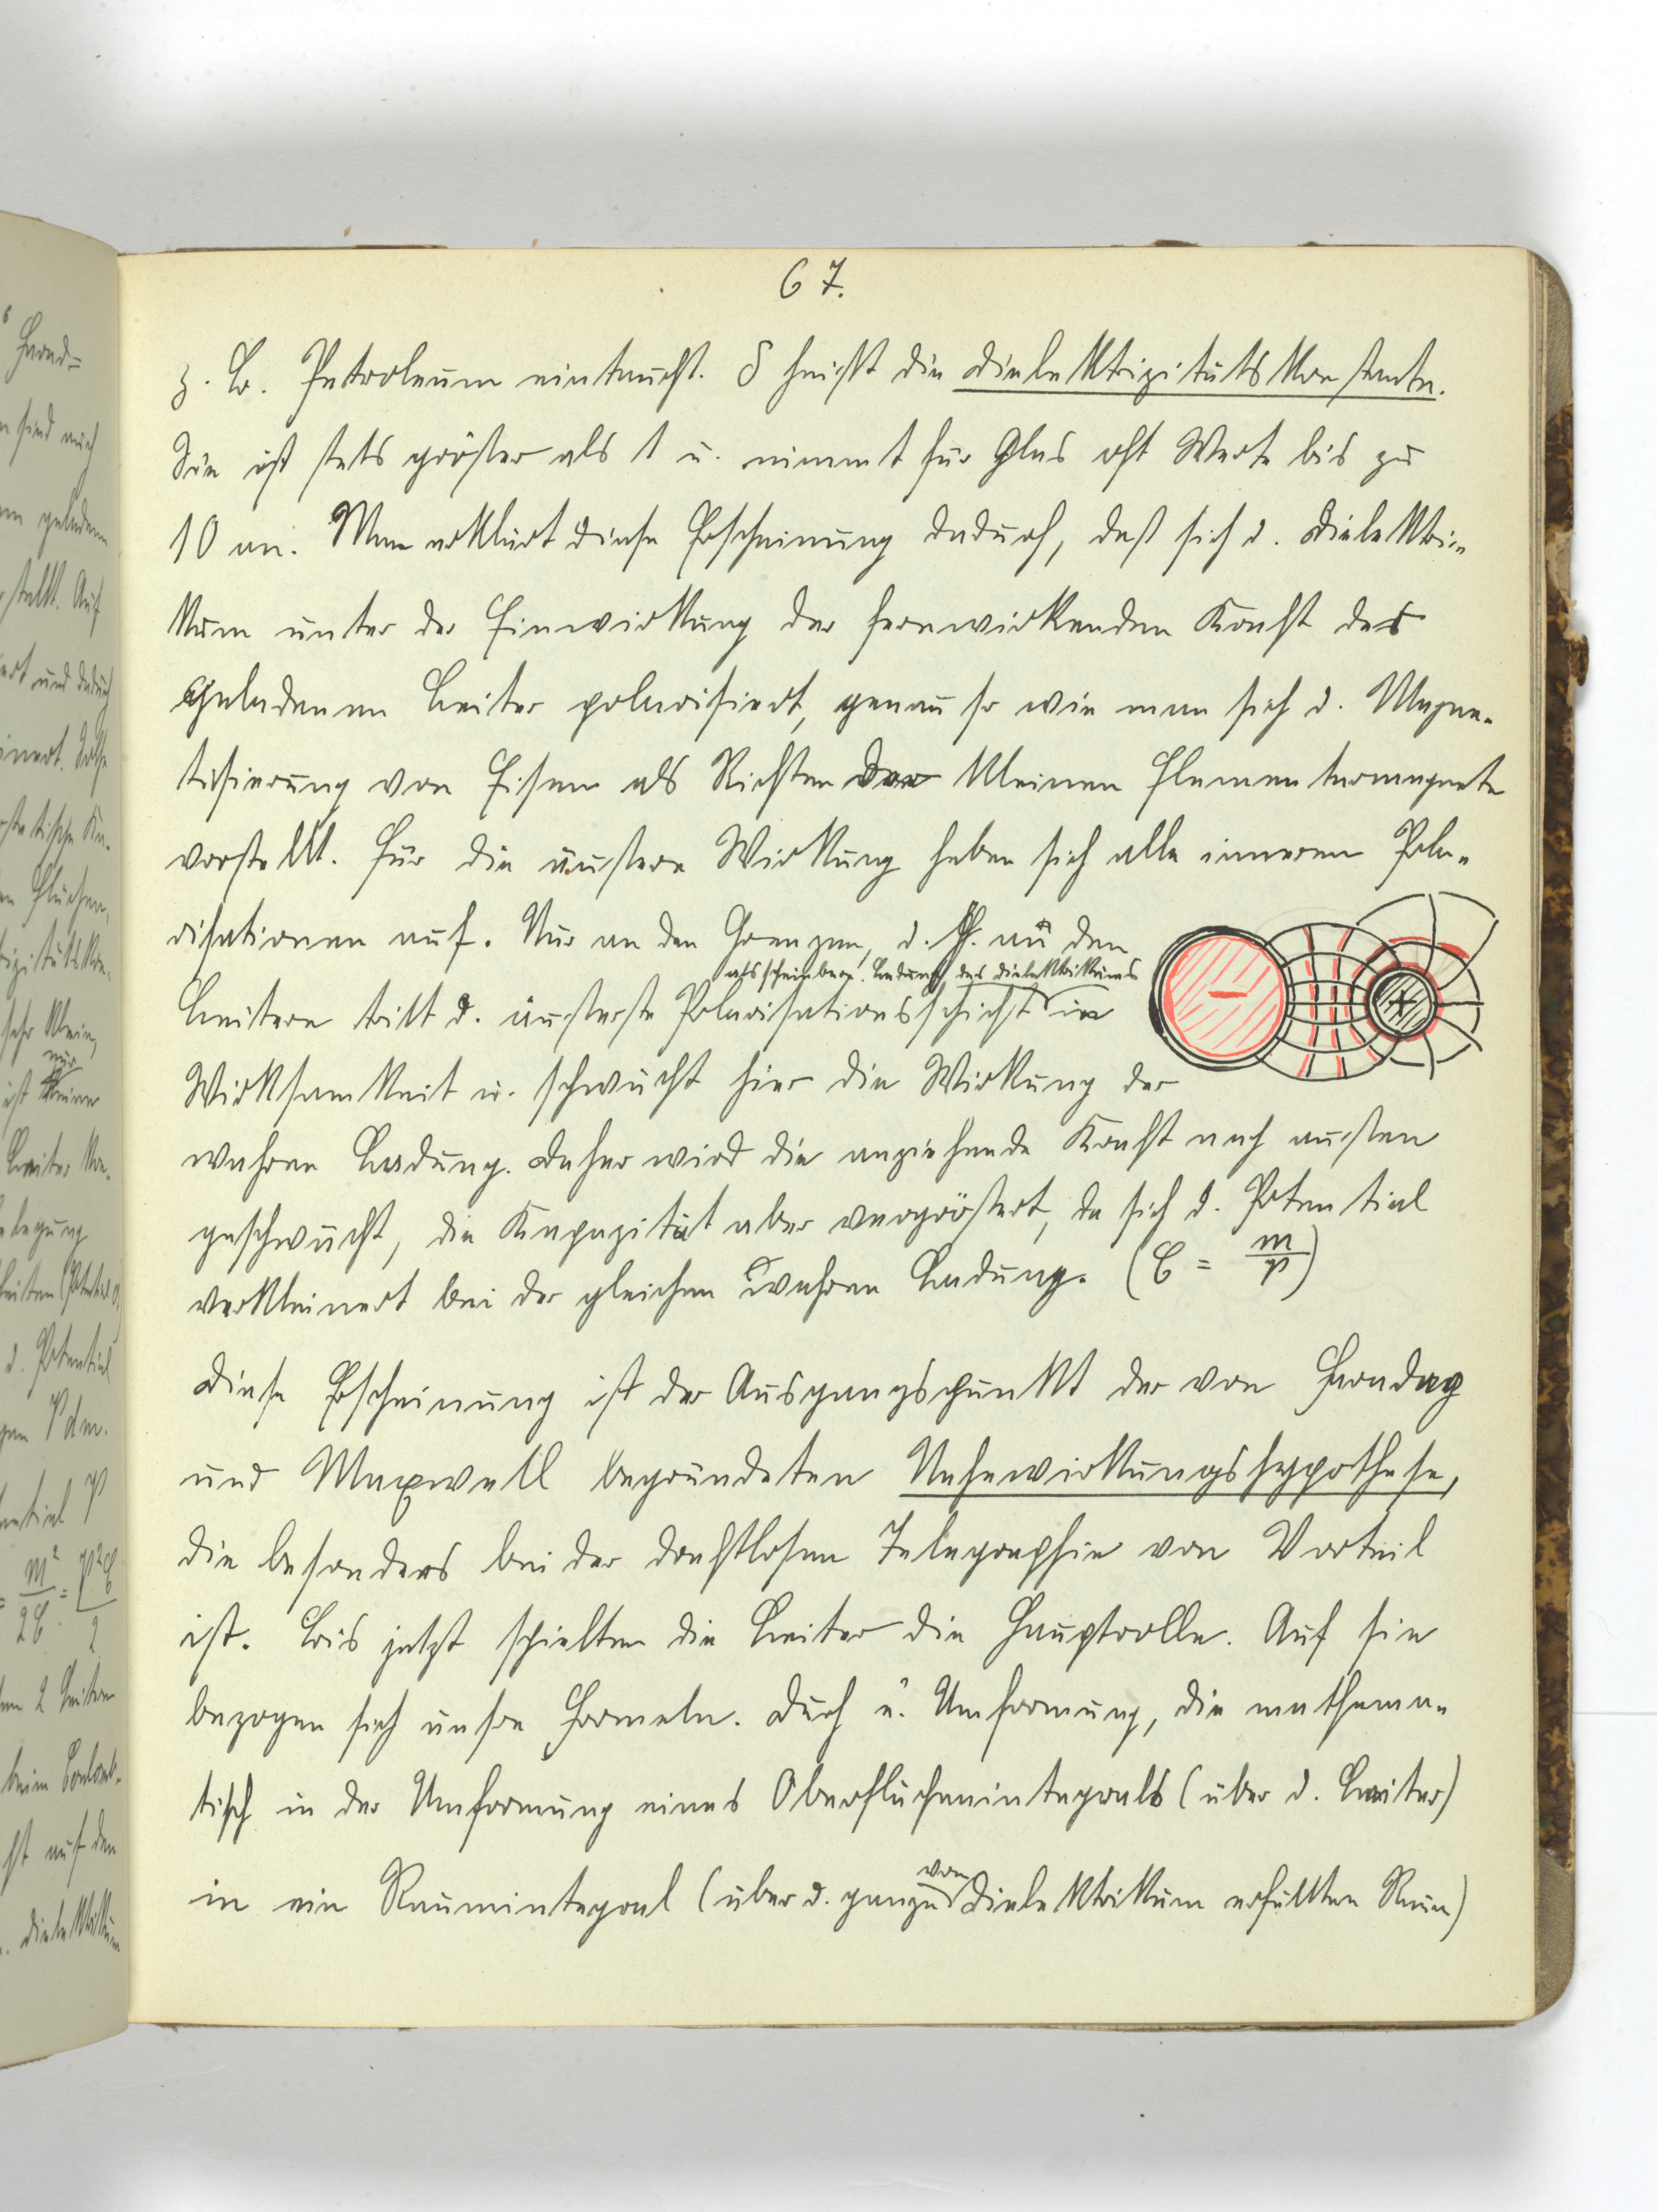 67.
z. B. Petroleum eintaucht. δ heißt die Dielektrizitätskonstante.
Sie ist stets größer als 1 u. nimmt für Glas oft Werte bis zu
10 an. Man erklärt diese Erscheinung dadurch, daß sich d. Dielektri-
kum unter der Einwirkung der fernwirkenden Kraft der
geladenen Leiter polarisiert, genau so wie man sich d. Magne-
tisierung von Eisen als Richten der kleinen Elementarmagnete
vorstellt. Für die äußere Wirkung heben sich alle inneren Pola-
risationen auf. Nur an den Grenzen, d. h. an den
als scheinbare Ladung des Dielektrikums
Leitern tritt d. äußerste Polarisationsschicht in
Wirksamkeit u. schwächt hier die Wirkung der
wahren Ladung. Daher wird die anziehende Kraft nach außen
geschwächt, die Kapazität aber vergrößert, da sich d. Potential
verkleinert bei der gleichen wahren Ladung. (C = m/V)
Diese Erscheinung ist der Ausgangspunkt der von Faraday
und Maxwell begründeten Nahewirkungshypothese,
die besonders bei der drahtlosen Telegraphie von Vorteil
ist. Bis jetzt spielten die Leiter die Hauptrolle. Auf sie
bezogen sich unsre Formeln. Durch e. Umformung, die mathema-
tisch in der Umformung eines Oberflächenintegrals (über d. Leiter)
von
in ein Raumintegral (über d. ganzen Dielektrikum erfüllten Raum)
- +